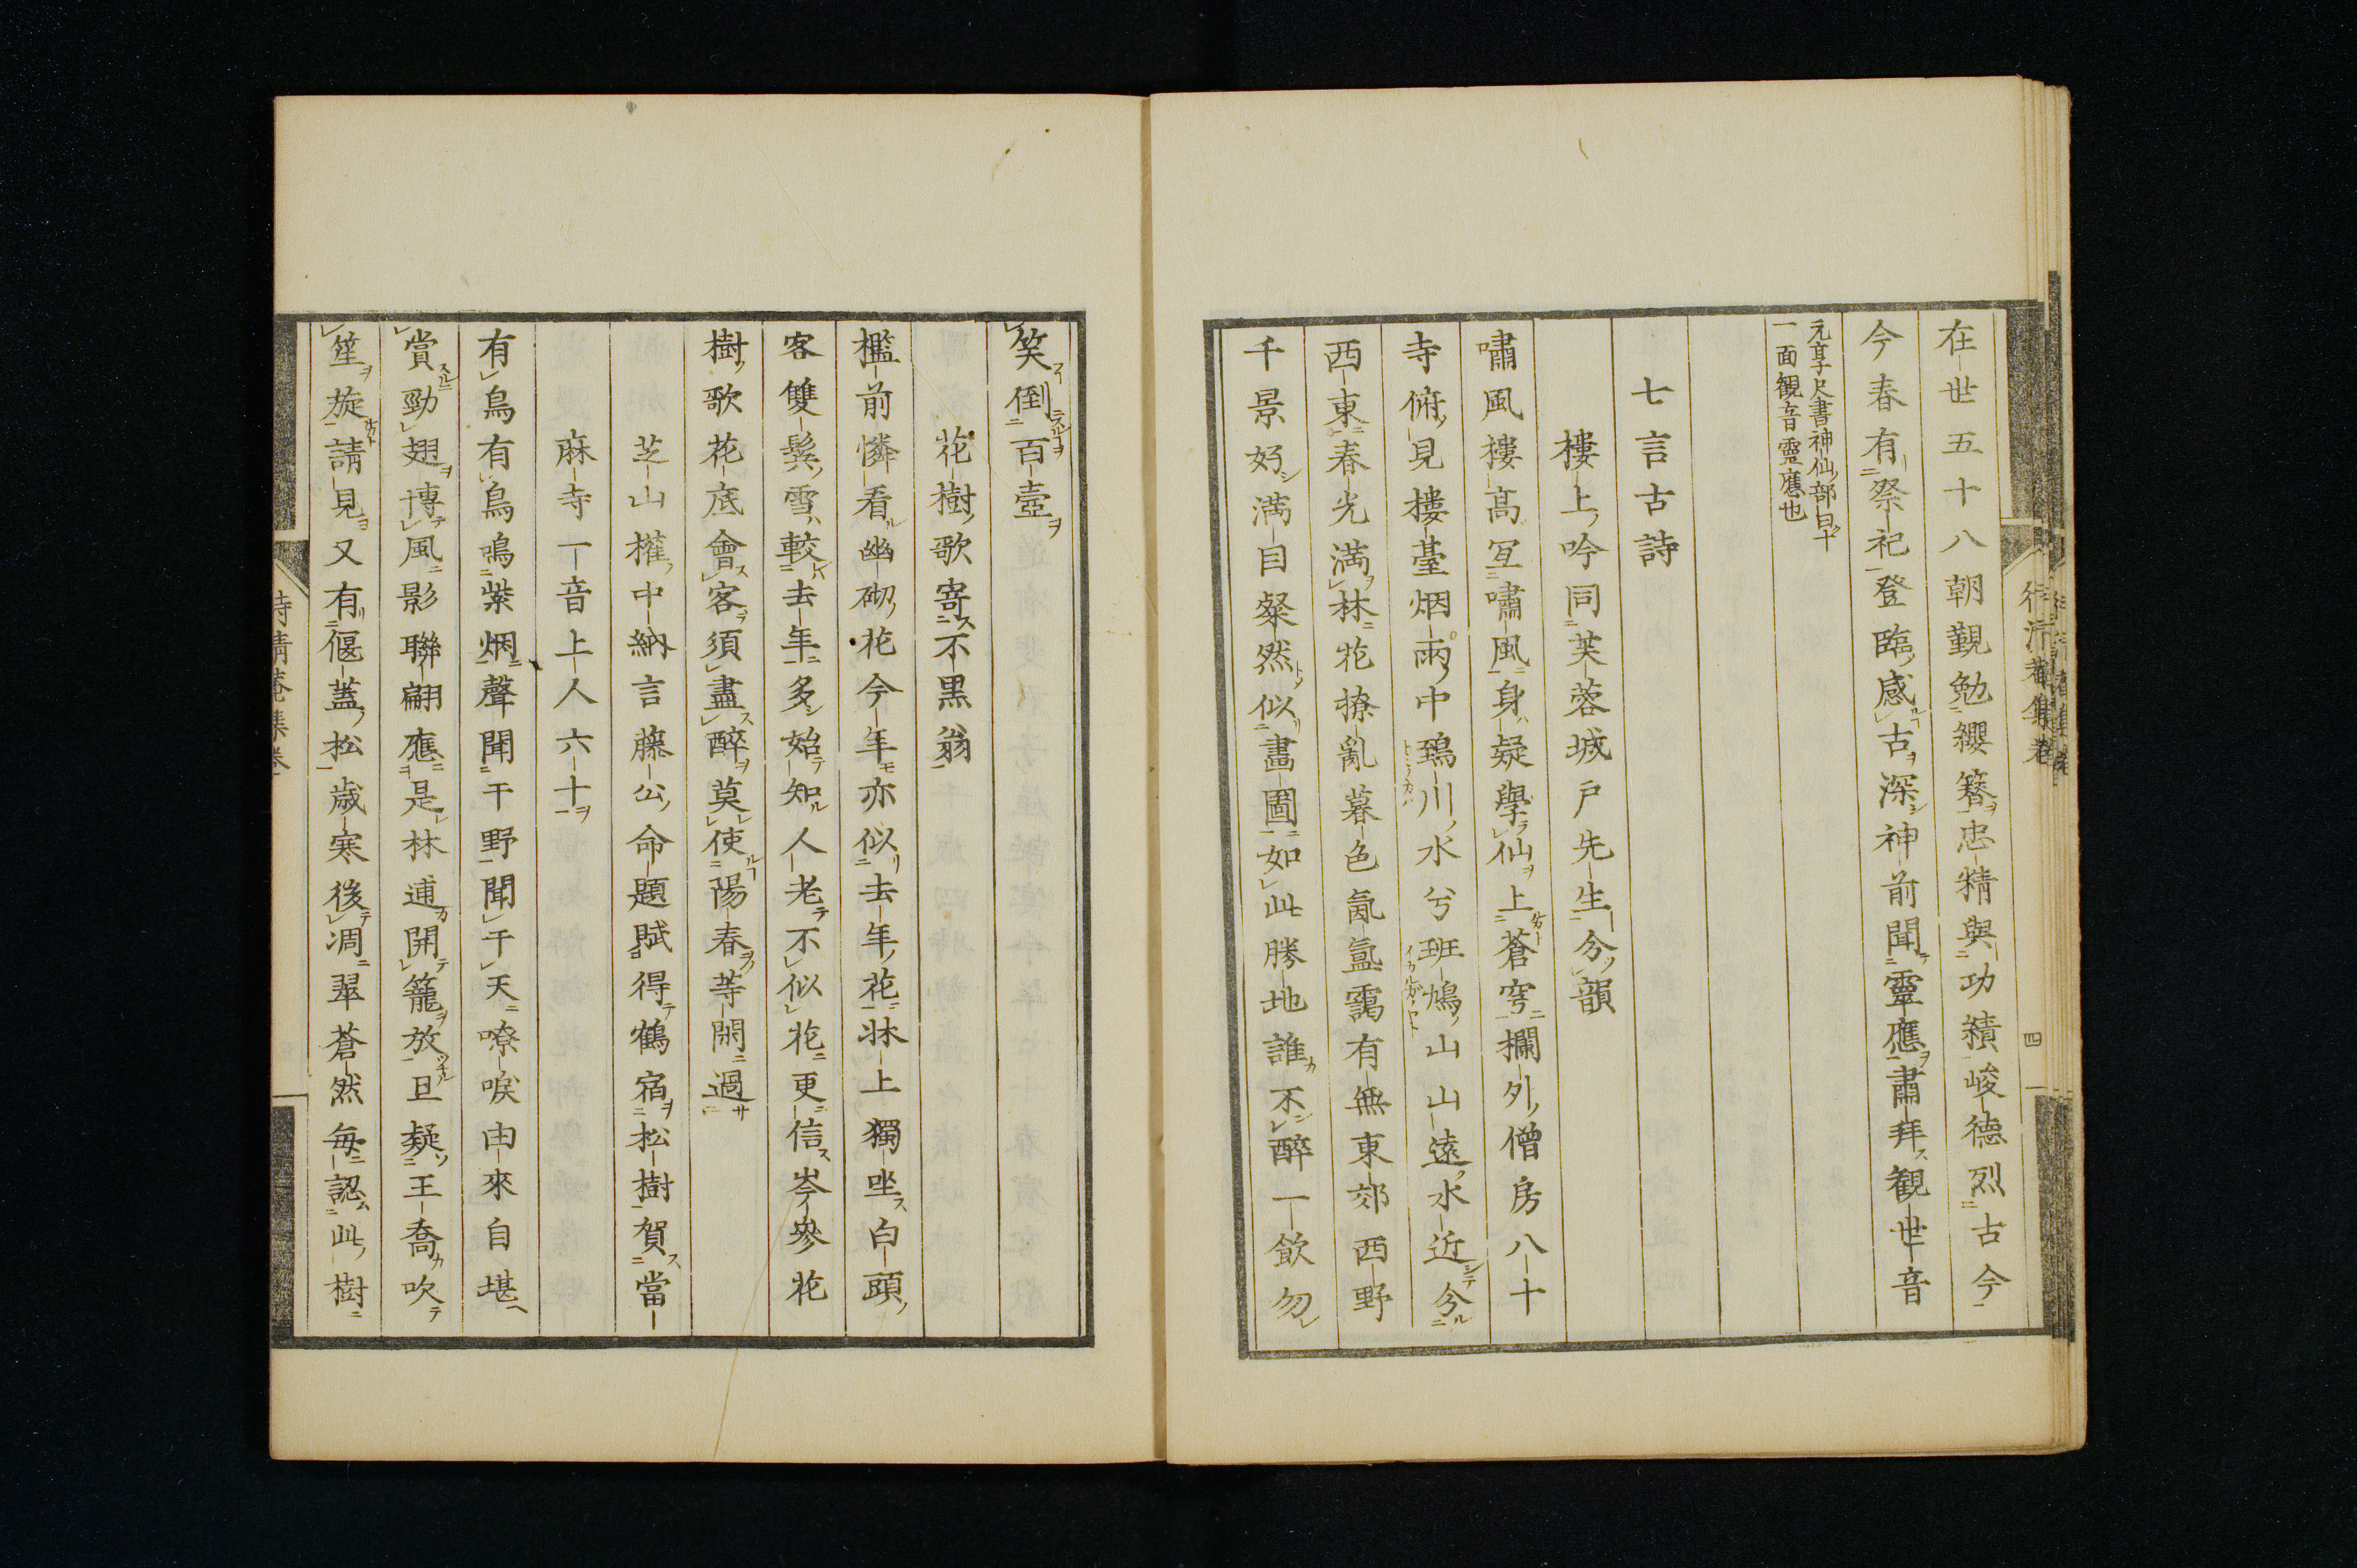 在世五十八朝覲勉纓簪忠精與功績峻德烈古今
今春有祭祀登臨感古深神前聞靈應肅拜観世音
元亨尺書神仙部曰十
一面観音靈應也
七言古詩
樓上吟同芙蓉城戸先生分韻
嘯風樓高冝嘯風身疑學仙上蒼穹欄外僧房八十
寺俯見樓臺烟雨中鵄川水兮班鳩山山遠水近分
西東春光満林花撩亂暮色氤氳靄有無東郊西野
千景好満目粲然似畫圖如此勝地誰不醉一飲勿
笑倒百壺
花樹歌寄不黒翁
檻前憐看幽砌花今年亦似去年花牀上獨坐白頭
客雙鬂雪較去年多始知人老不似花更信岑參花
樹歌花底會客須盡醉莫使陽春等閑過
芝山權中納言藤公命題賦得鶴宿松樹賀當
麻寺一音上人六十
有鳥有鳥鳴紫烟聲聞于野聞于天嘹唳由來自堪
賞勁翅博風影聯翩應是林逋開籠放旦疑王喬吹
笙旋請見又有偃蓋松歳寒後凋翠蒼然毎認此樹
四